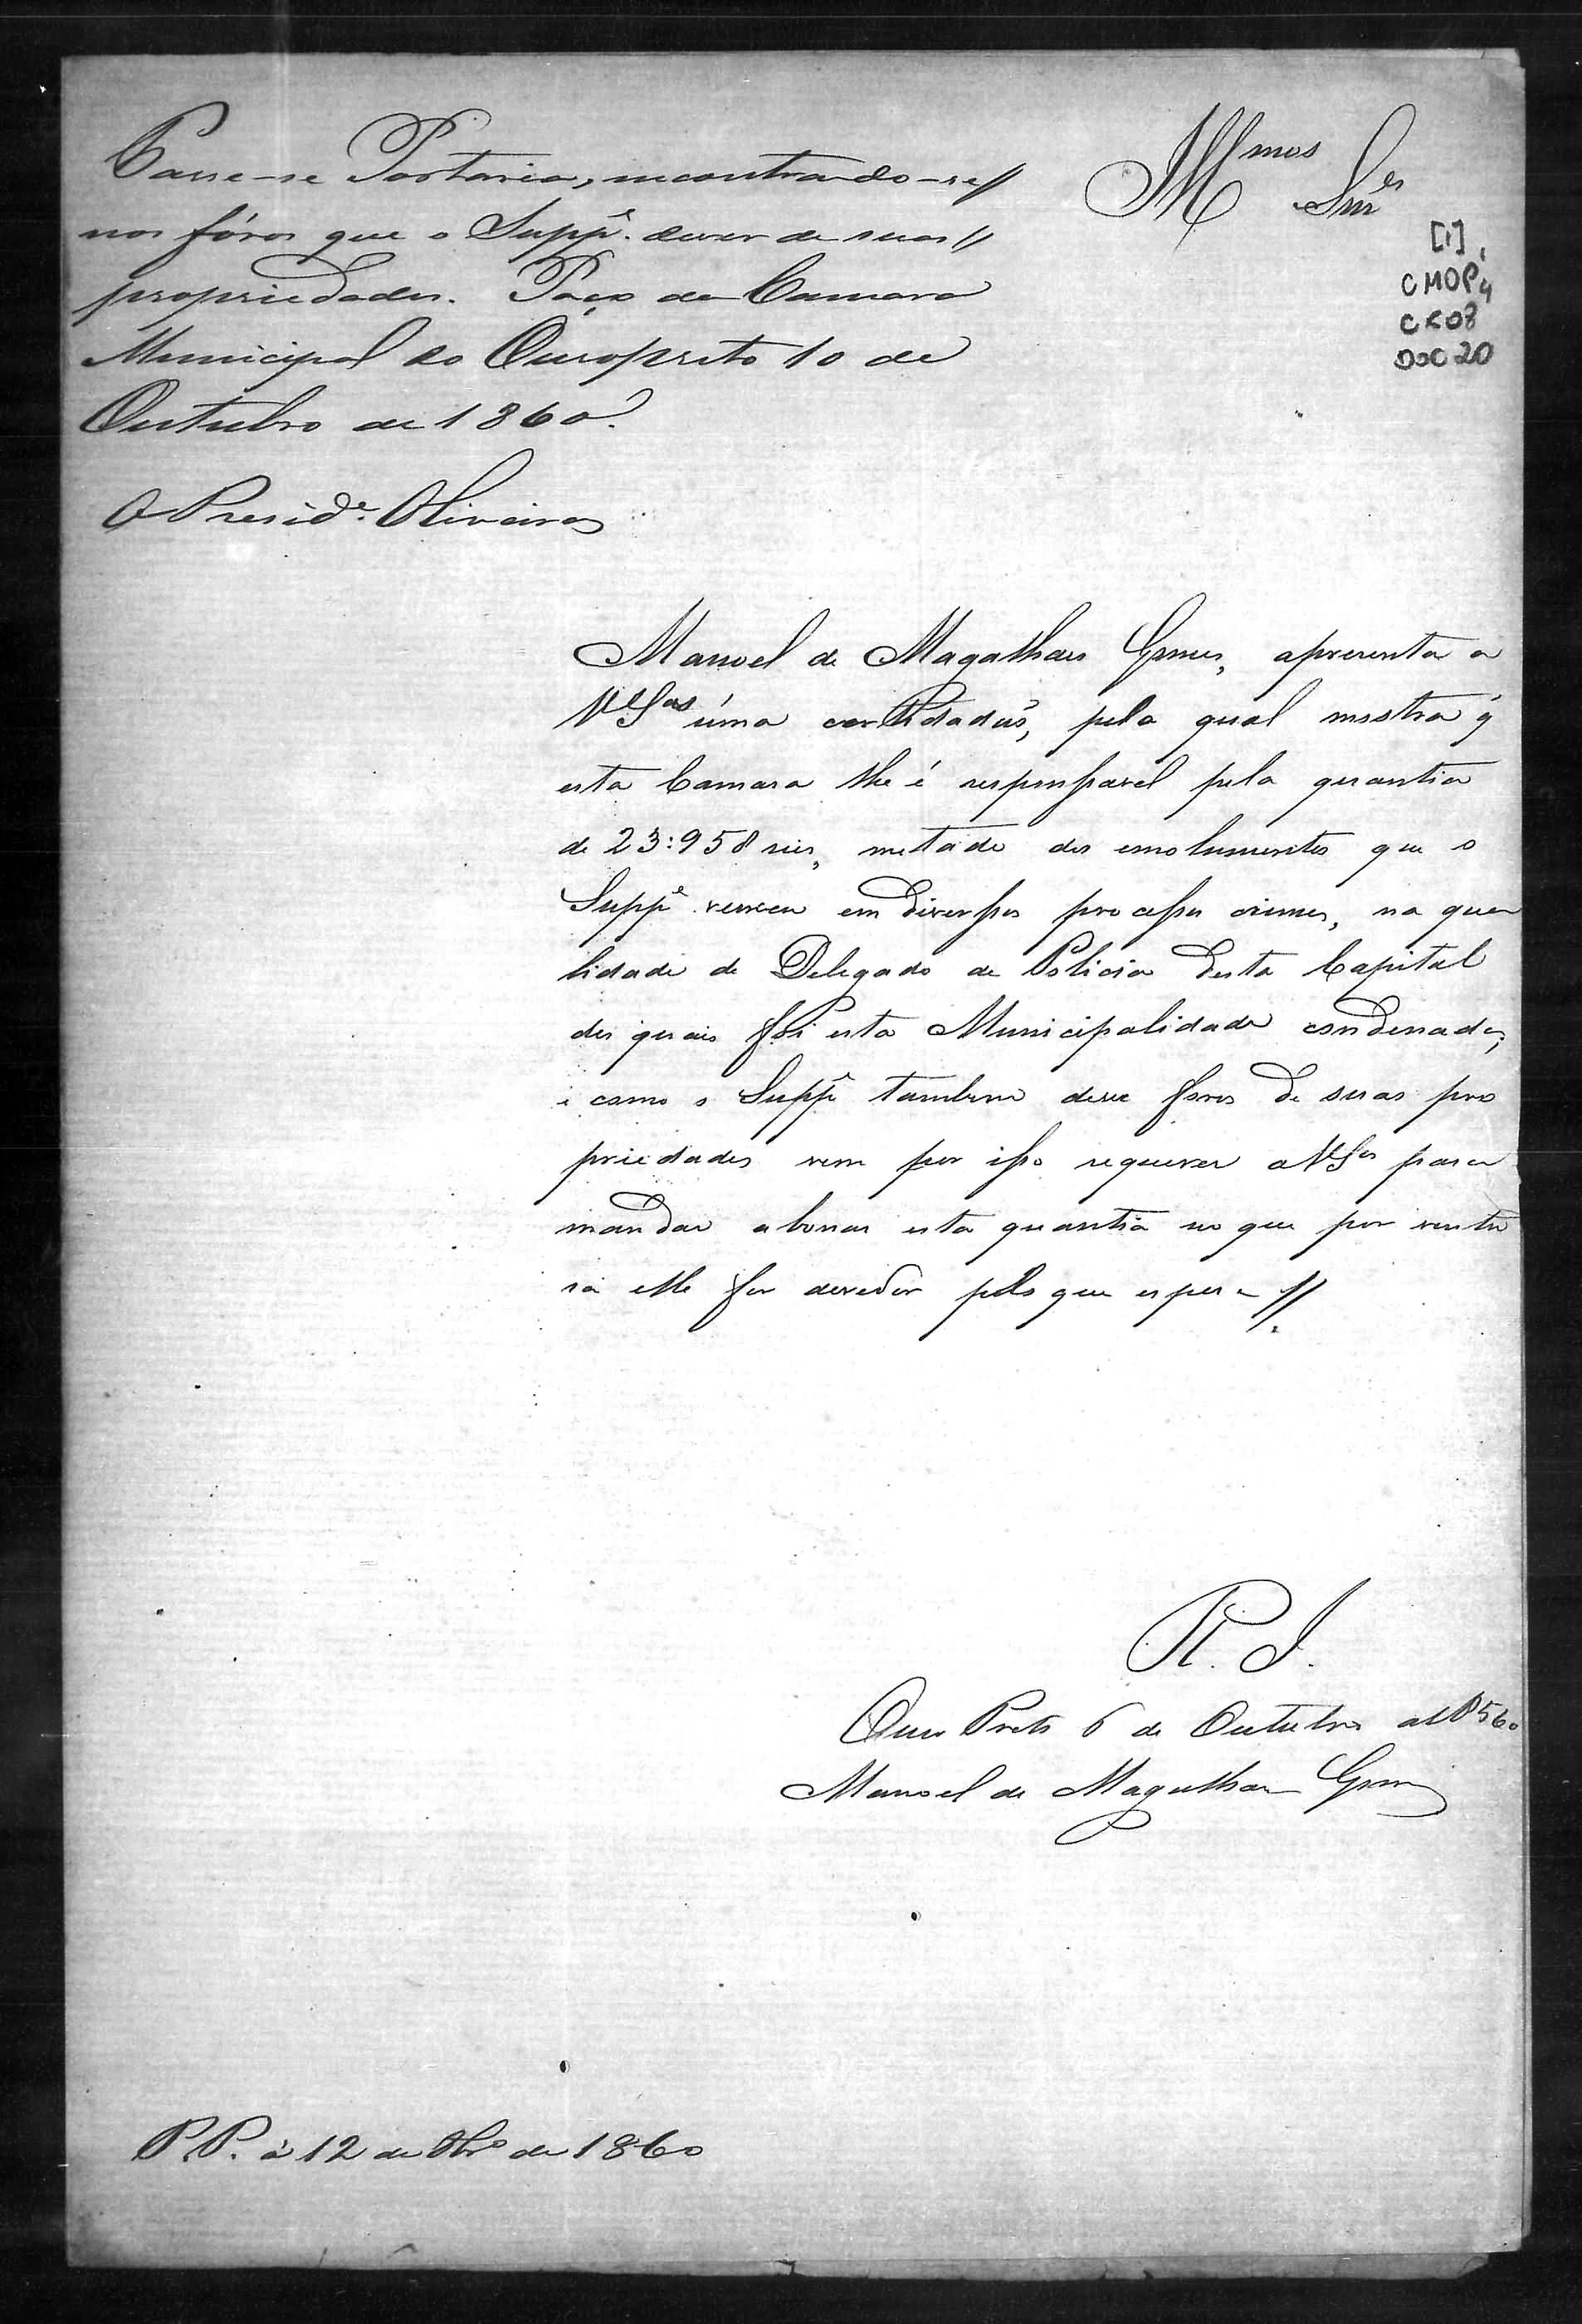 Passe-se Portaria, incontrando-se
nos fóros que o Supp.e dever de suas
propriedades. Paço da Camara
Municipal do Ouropreto 10 de
Outubro de 1860.
O Presid.e Oliveira
Ill.mos Snr.es
[1]
CMOP4
CX08
DOC20
Manoel de Magalhaes Gomes, apresenta a
V.as S.as úma certidadãs, pela qual mostra q
esta Camara lhe é responsavel pela quantia
de 23:958 reis, metade dos emolumentos que o
Supp.e venceu em diversos processos crimes, na qua
lidade de Delegado de Policia desta Capital
dos quais foi esta Municipalidade condenada;
e como o Supp.e tambem deve foros de suas pro
priedades vem por isso requerer a V.as S.as para
mandar abonar esta quantia no que por ventu
ra elle for devedor pelo que espera
R. J.
Ouro Preto 6 de Outubro de 1860
Manoel de Magalhaes Gomes
P. P. á 12 de 8br.o de 1860